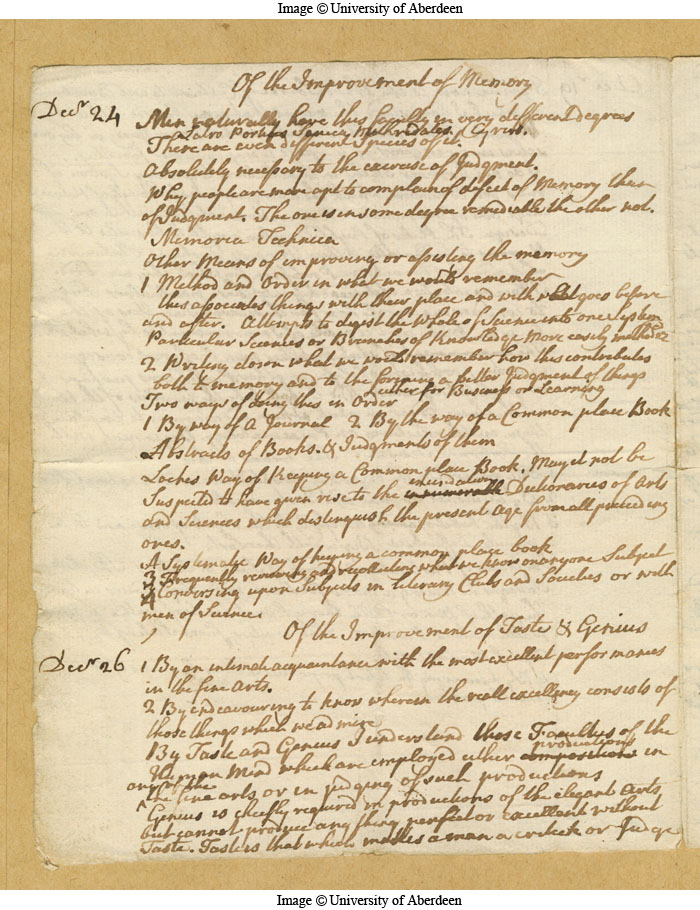 Image © University of Aberdeen
Of the Improvement of Memory
Decr 24
Men naturally have this faculty in very different degrees
Cato Portius Seneca Mithridates Cyrus.
There are even different Species of it.
Absolutely necessary to the exercise of Judgment.
Why people are more apt to complain of defect of Memory than
of Judgment. The one is in some degree remediable the other not.
Memoria Technica
Other Means of improving or assisting the memory
1 Method and Order in what we would remember
this associates things with their place and with what goes before
and after. Attempts to digest the whole of Science into one System
Particular Sciences or Branches of Knowledge more easily methodized
2 Writing down what we would remember how this contributes
both to memory and to the forming a better Judgment of things
either for Business or Learning
Two ways of doing this in Order
1 By way of a Journal 2 By the way of a Common place Book
Abstracts of Books. & Judgments of them
Lockes Way of Keeping a Common place Book. May it not be
Suspected to have given rise to the inundation Dictionaries of Arts
and Sciences which distinguish the present age from all preceding
ones.
A Systematic Way of keeping a common place book
3 Frequently reviewing and recollecting what we know on any one Subject
4 Conversing upon Subjects in Literary Clubs and Societies or with
men of Science.
Of the Improvement of Taste & Genius
Decr 26
1 By an intimate acquaintance with the most excellent performances
in the fine Arts.
2 By endeavouring to know wherein the reall excellency consists of
those things which we admire
By Taste and Genius I understand those Faculties of the
productions
Human Mind which are employed either compositions in
any of the
the fine arts or in judging of such productions
Genius is chiefly required in productions of the elegant Arts
but cannot produce any thing perfect or excellent without
Taste. Taste is that which makes a man a critick or Judge
Image © University of Aberdeen